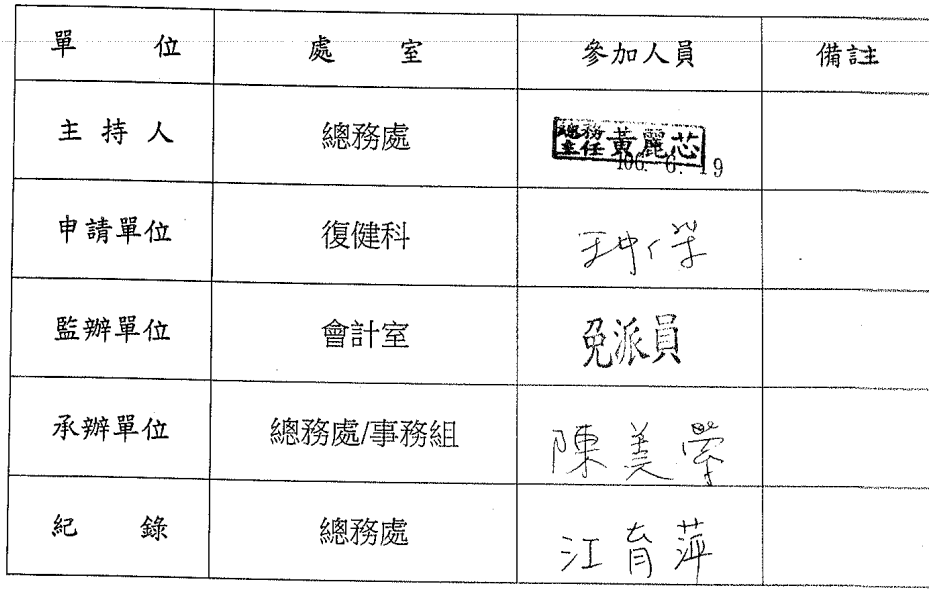 單 位 處 室 參加人員 備註
主 持 人 總務處 總務主任 黃麗芯
106. 6. 19
申請單位 復健科
監辦單位 會計室 免派員
承辦單位 總務處/事務組 陳美
紀 錄 總務處 江育萍